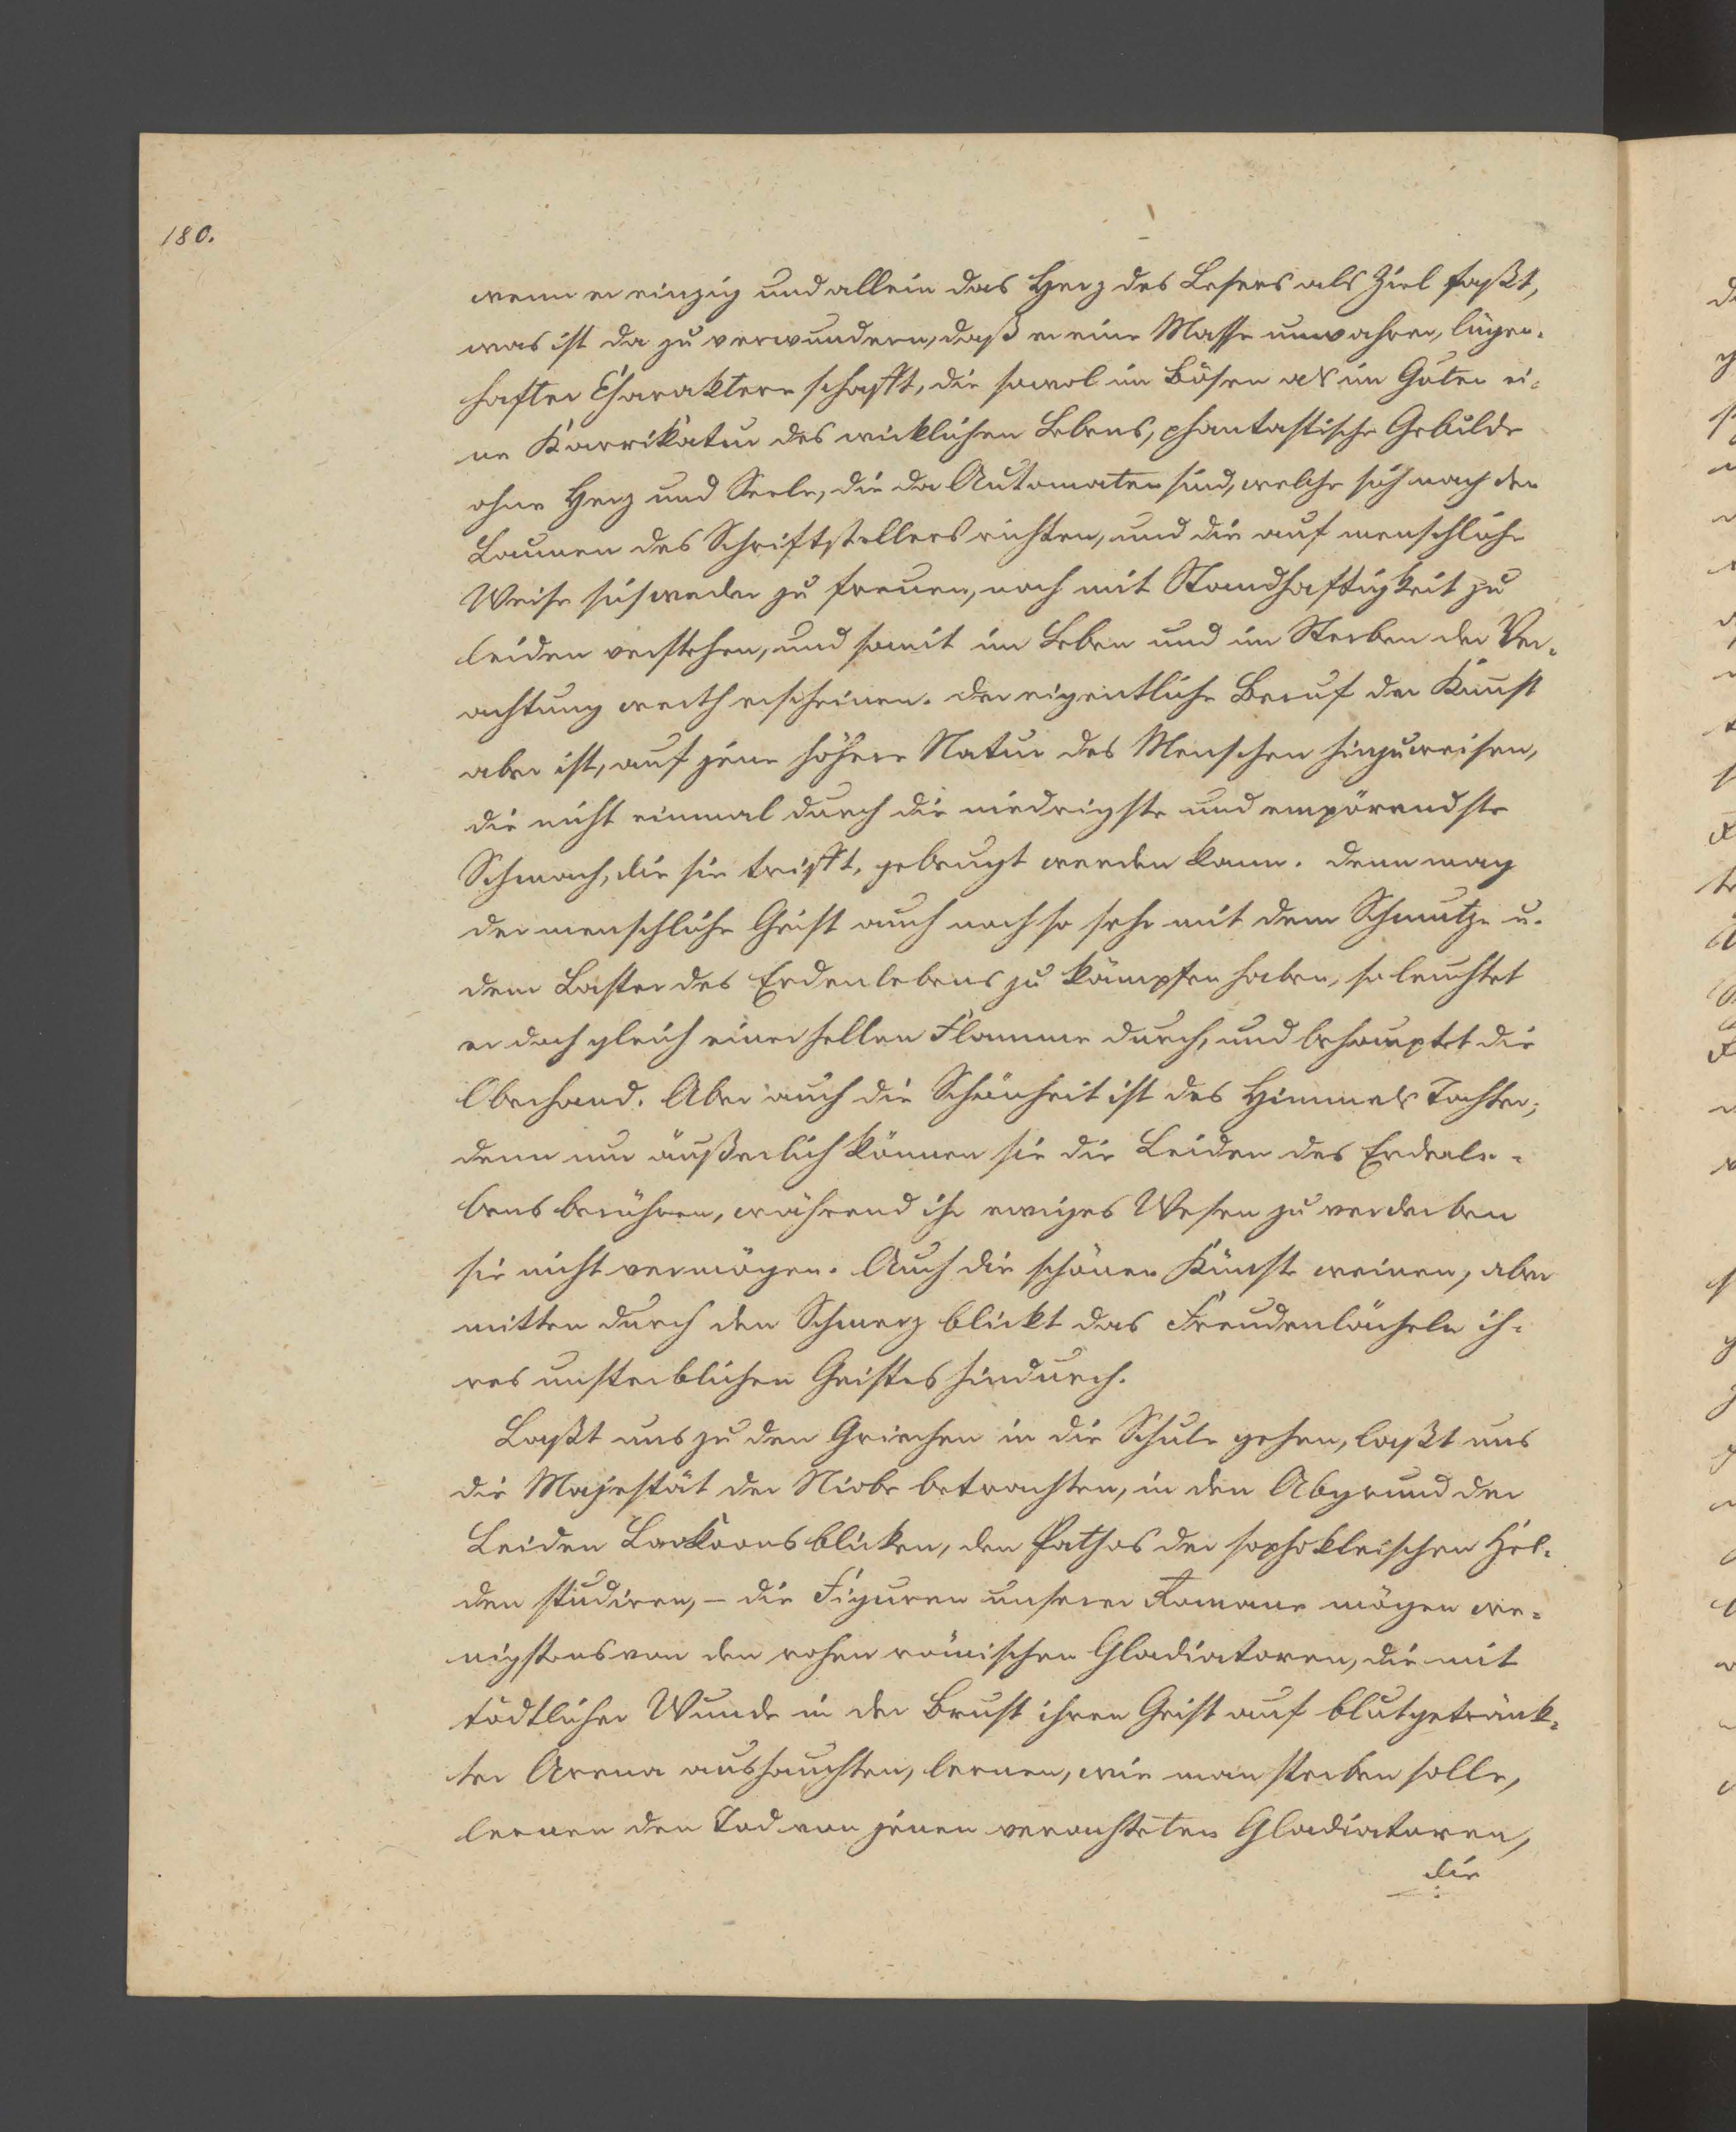 180.
wenn er einzig und allein das Herz des Lesers als Ziel faßt,
was ist da zu verwundern, daß er eine Masse unwahrer, lügen-
hafter Charaktere schafft, die sowol im Bösen als im Guten ei-
ne Karrikatur des wirklichen Lebens, phantastische Gebilde
ohne Herz und Seele, die da Automaten sind, welche sich nach den
Launen des Schriftstellers richten, und die auf menschliche
Weise sich weder zu freuen, noch mit Standhaftigkeit zu
leiden verstehen, und somit im Leben und im Sterben der Ver-
achtung werth erscheinen. Der eigentliche Beruf der Kunst
aber ist, auf jene höhere Natur des Menschen hinzuweisen,
die nicht einmal durch die niedrigste und empörendste
Schmach, die sie trifft, gebeugt werden kann. Denn mag
der menschliche Geist auch noch so sehr mit dem Schmutze u.
dem Laster des Erdenlebens zu kämpfen haben, so leuchtet
er doch gleich einer hellen Flamme durch, und behauptet die
Oberhand. Aber auch die Schönheit ist des Himmels Tochter;
denn nur äußerlich können sie die Leiden des Erdenle-
bens berühren, während ihr ewiges Wesen zu verderben
sie nicht vermögen. Auch die schönen Künste weinen, aber
mitten durch den Schmerz blickt das Freudenlächeln ih-
res unsterblichen Geistes hindurch.
Laßt uns zu den Griechen in die Schule gehen, laßt uns
die Majestät der Niobe betrachten, in den Abgrund der
Leiden Laokoons blicken, den Pathos der sophokleischen Hel-
den studiren, – die Figuren unserer Romane mögen we-
nigstens von den rohen römischen Gladiatoren, die mit
tödtlicher Wunde in der Brust ihren Geist auf blutgetränk-
ter Arena aushauchten, lernen, wie man sterben solle,
lernen den Tod von jenen verachteten Gladiatoren,
die